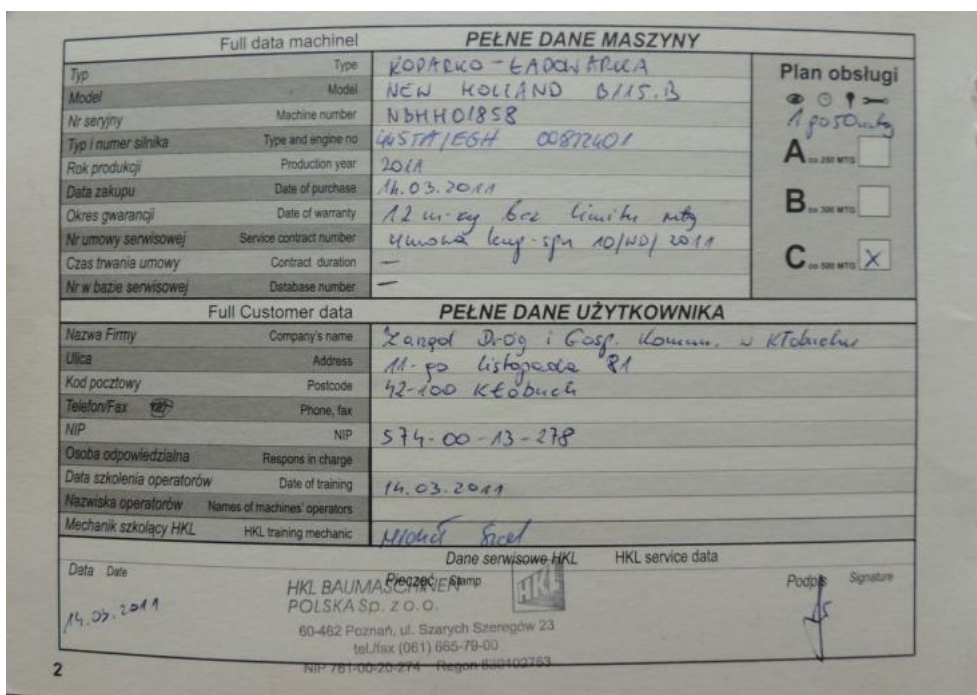 Full data machinel PEŁNE DANE MASZYNY
Typ Type KOPARKO - ŁADOWARKA
Model Model NEW HOLLAND B115.B
Nr seryjny Machine number NBHH01858
Typ i numer silnika Type and engine no 445TA/EGH 00872401
Rok produkcji Production year 2011
Data zakupu Date of purchase 14.03.2011
Okres gwarancji Date of warranty 12 m-cy bez limitu mtg
Nr umowy serwisowej Service contract number Umowa kup-spr 10/WD/2011
Czas trwania umowy Contract duration —
Nr w bazie serwisowej Database number —
Plan obsługi
1 po 50 mtg
A co 250 MTG
B co 300 MTG
C co 500 MTG X
Full Customer data PEŁNE DANE UŻYTKOWNIKA
Nazwa Firmy Company's name Zarząd Dróg i Gosp. Komun. w Kłobucku
Ulica Address 11-go listopada 81
Kod pocztowy Postcode 42-100 Kłobuck
Telefon/Fax Phone, fax
NIP NIP 574-00-13-278
Osoba odpowiedzialna Respons in charge
Data szkolenia operatorów Date of training 14.03.2011
Nazwiska operatorów Names of machines' operators
Mechanik szkolący HKL HKL training mechanic Michał
Dane serwisowe HKL HKL service data
Data Date Pieczęć Stamp Podpis Signature
14.03.2011
HKL BAUMASCHINEN
POLSKA Sp. z o.o.
HKL
60-462 Poznań, ul. Szarych Szeregów 23
tel./fax (061) 665-79-00
NIP 781-00-20-274 Regon 630102753
2